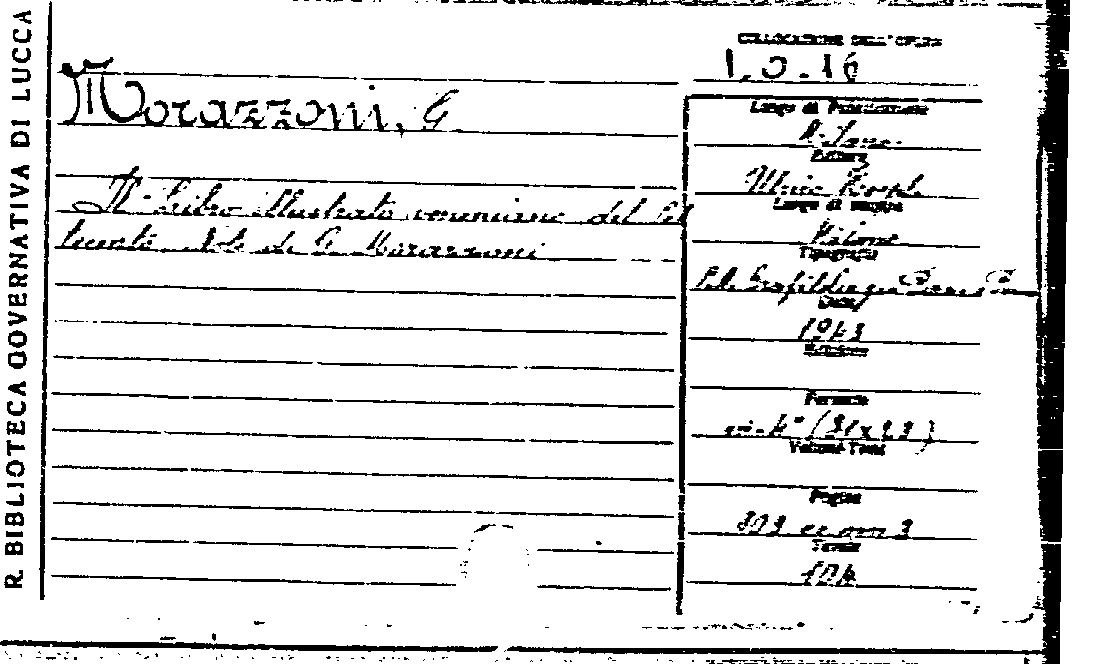 R. BIBLIOTECA GOVERNATIVA DI LUCCA
Morazzoni, G.
Il Libro illustrato veneziano del Set
tecento. Note di G. Morazzoni
COLLOCAZIONE DELL'OPERA
1.0.16
Luogo di Pubblicazione
Editore
Ulrico Hoepli
Luogo di stampa
Milano
Tipografia
Data
1943
Edizione
Formato
in-4° (31x23)
Volume-Tomi
Pagine
309 3
Tavole
104